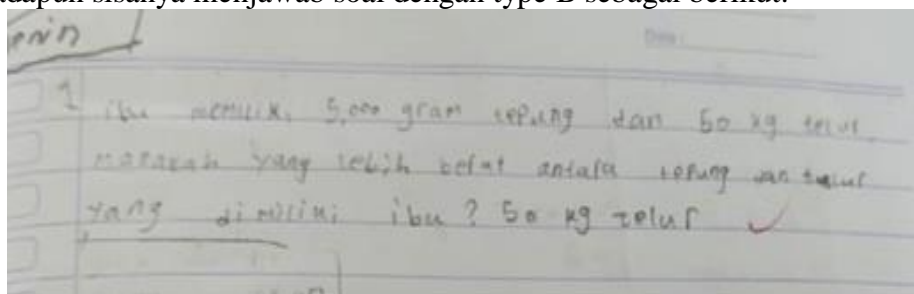 adapun sisanya menjawab soal dengan type B sebagai berikut:
1 ibu memiliki 5,000 gram tepung dan 50 kg telur
manakah yang lebih berat antara tepung dan telur
yang dimiliki ibu? 50 kg telur ✓